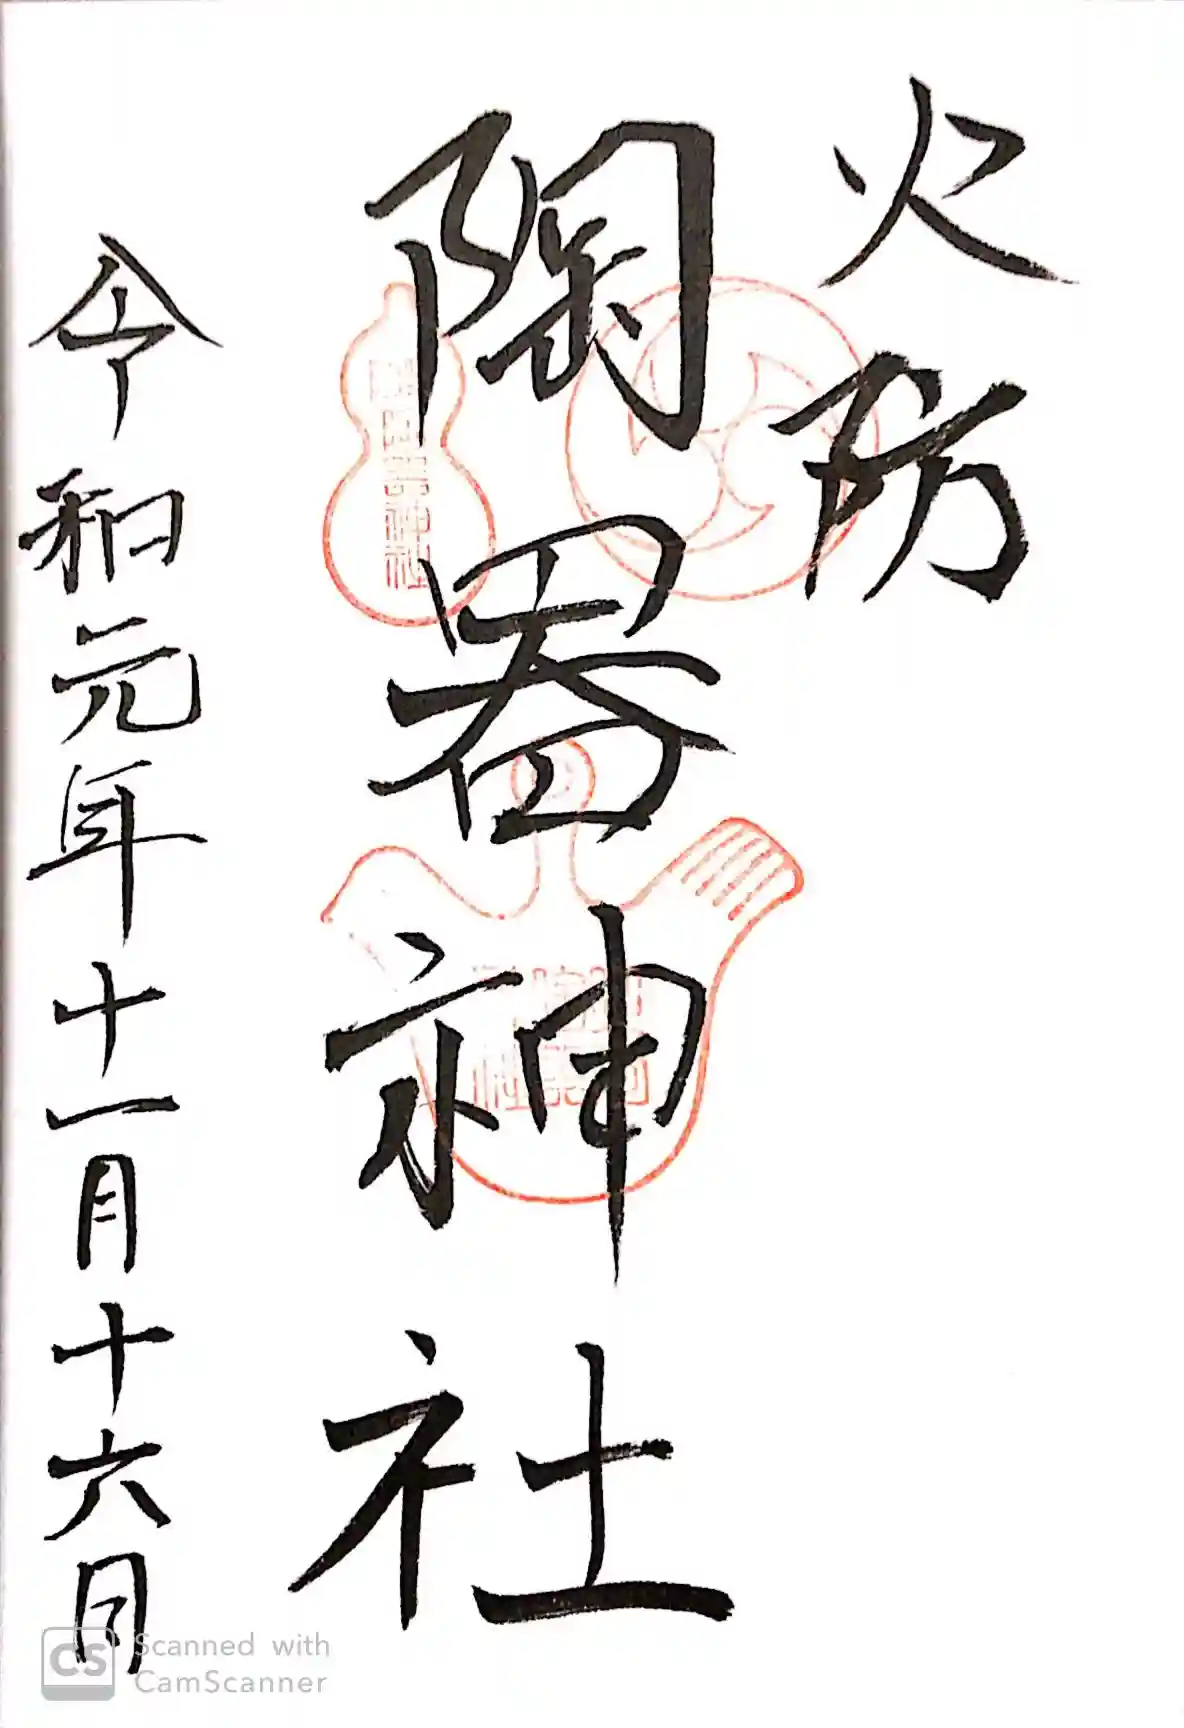 火防
陶器神社
令和元年十一月十六日
CS Scanned with
CamScanner